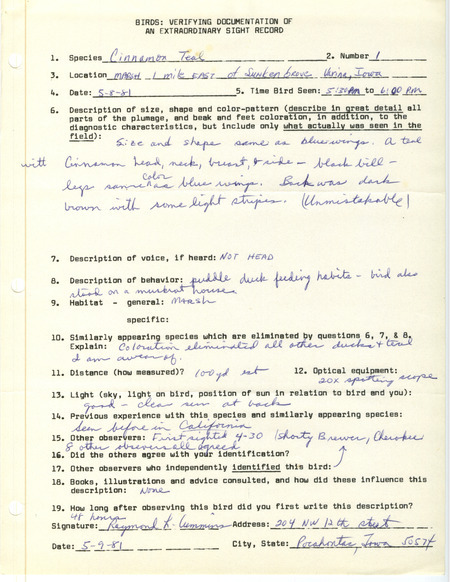 BIRDS: VERIFYING DOCUMENTATION OF
AN EXTRAORDINARY SIGHT RECORD
1. Species Cinnamon Teal 2. Number 1
3. Location MARSH 1 mile EAST of Sunken Grove Varina, Iowa
4. Date: 5-8-81 5. Time Bird Seen: 5:30PM to 6:00 PM
6. Description of size, shape and color-pattern (describe in great detail all
parts of the plumage, and beak and feet coloration, in addition, to the
diagnostic characteristics, but include only what actually was seen in the
field): Size and shape same as bluewings. A teal
with Cinnamon head, neck, breast, & side - black bill -
legs same color as blue wings. Back was dark
brown with some light stripes. (Unmistakable)
7. Description of voice, if heard: NOT HEAD
8. Description of behavior: puddle duck feeding habits - bird also
stood on a muskrat house.
9. Habitat - general: MARSH
specific:
10. Similarly appearing species which are eliminated by questions 6, 7, & 8.
Explain: Coloration eliminated all other ducks & teal
I am aware of.
11. Distance (how measured)? 100yd est 12. Optical equipment:
20X spotting scope
13. Light (sky, light on bird, position of sun in relation to bird and you):
good - clear sun at backs
14. Previous experience with this species and similarly appearing species:
Seen before in California
15. Other observers: First sighted 4-30 (Shorty Brewer, Cherokee
8 other observers all agreed
16. Did the others agree with your identification?
17. Other observers who independently identified this bird:
18. Books, illustrations and advice consulted, and how did these influence this
description: None
19. How long after observing this bird did you first write this description?
48 hours
Signature: Raymond L. Cummins Address: 204 NW 12th street
Date: 5-9-81 City, State: Pocahontas, Iowa 50574